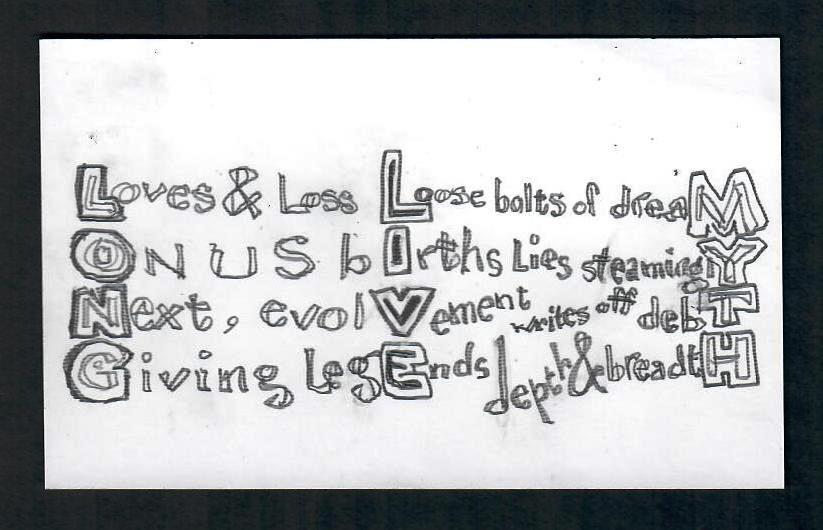 Loves & Loss Loose bolts of dreaM
ONUS bIrths Lies steaminglY
Next, evolVement writes off debT
Giving legEnds depth & breadtH